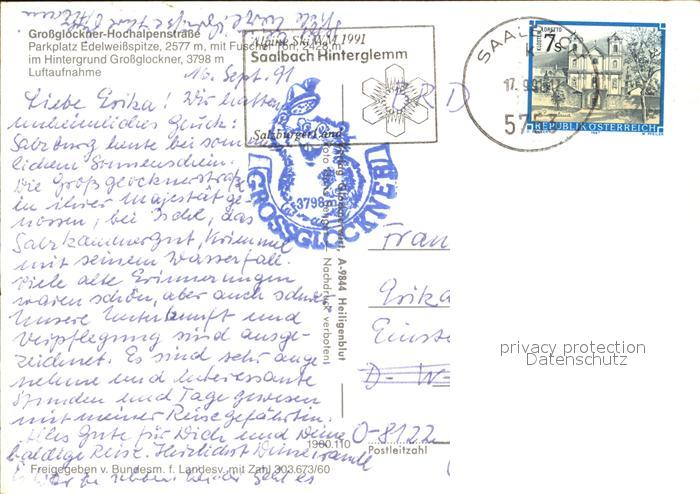 Großglockner-Hochalpenstraße
Parkplatz Edelweißspitze, 2577 m, mit Fuscher Törl, 2428 m
im Hintergrund Großglockner, 3798 m
Luftaufnahme
16. Sept. 91
Liebe Erika! Wir hatten
unheimliches Glück:
Salzburg heute bei som
lichem Sonnenschein.
Die Großglocknerstraße
in ihrer Majestät ge-
nossen, bei Ischl, das
Salzkammergut, Krimml
mit seinem Wasserfall.
Viele alte Erinnerungen
waren schön, aber auch
Unsere Unterkunft und
Verpflegung sind ausge-
zeichnet. Es sind sehr ange
nehme und interessante
Stunden und Tage gewesen
mit meiner Reisegefährtin.
Alles Gute für Dich und Deine
baldige Reise. Herzlichst Deine
Freigegeben v. Bundesm. f. Landesv. mit Zahl 303.673/60
Alpine Ski WM 1991
Saalbach Hinterglemm
SalzburgerLand
BRD
3798m
GROSSGLOCKNER
A-9844 Heiligenblut
Nachdruck verboten!
1900.110
SAALBACH
17.9.91
5753
KLOSTER LORETTO
7s
REPUBLIK ÖSTERREICH
Frau
Erika
Einste
D-W-
O-8122
Postleitzahl
privacy protection
Datenschutz